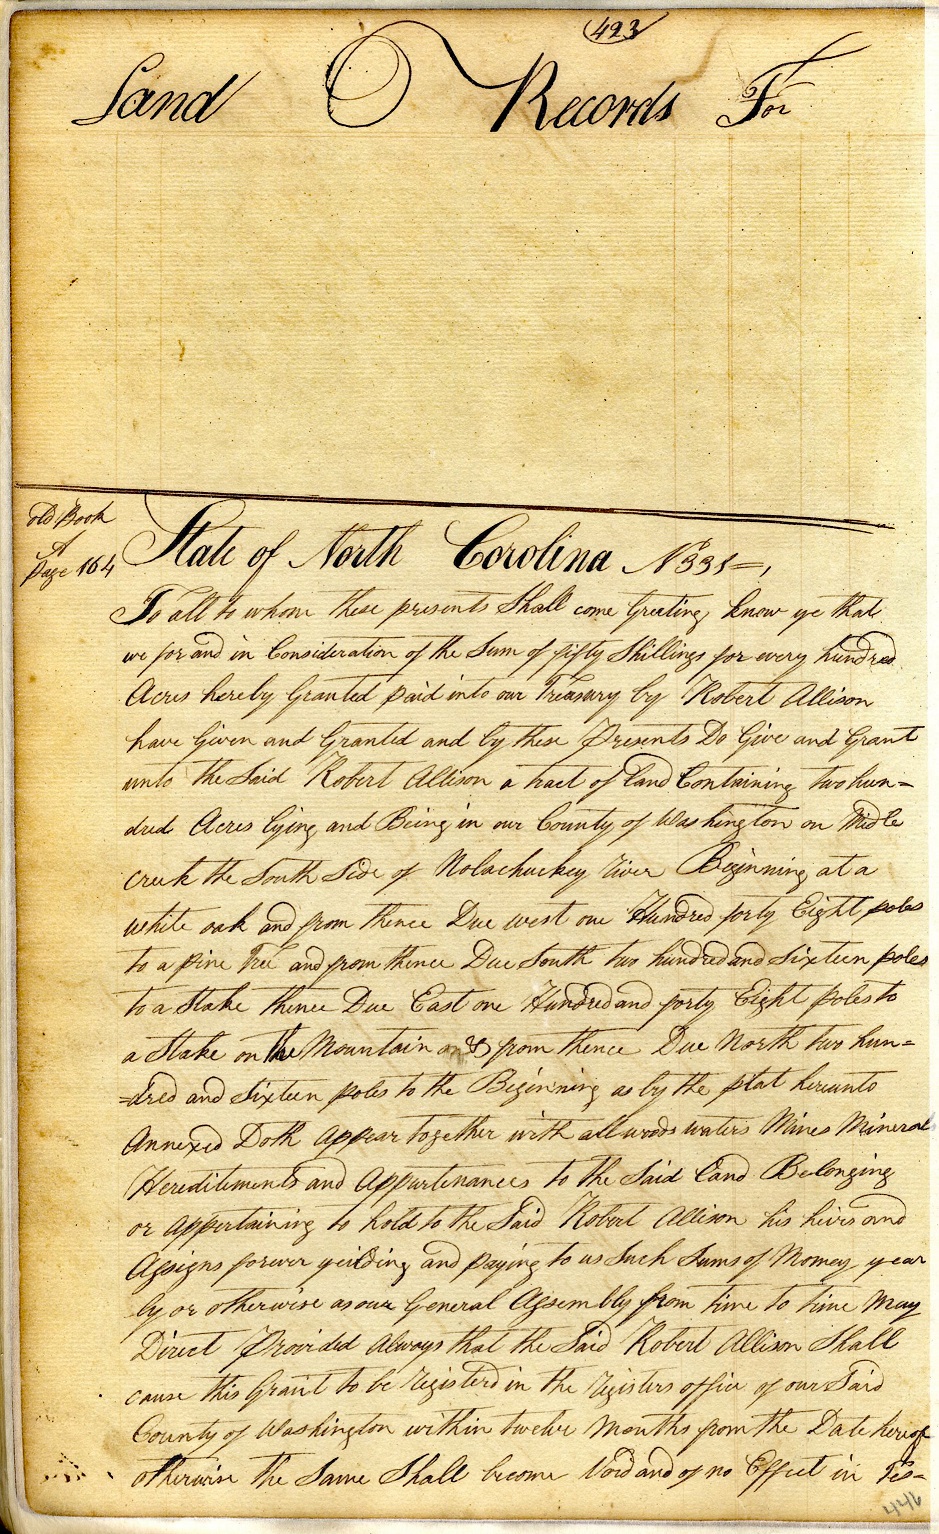 423
Land Records For
old Book
A
page 164
State of North Corolina No 331=,
To all to whom these presents Shall come Greeting know ye that
we for and in Consideration of the Sum of fifty Shillings for every hundred
Acres hereby Granted paid into our Treasury by Robert Allison
have Given and Granted and by these Presents Do Give and Grant
unto the Said Robert Allison a tract of Land Containing two hun=
dred Acres lying and Being in our County of Washington on Midle
creek the South Side of Nolachuckey River Beginning at a
white oak and from thence Due west one Hundred forty Eight poles
to a pine Tree and from thence Due South two hundred and Sixteen poles
to a Stake thence Due East one Hundred and forty Eight poles to
a Stake on the Mountain & from thence Due North two hun=
=dred and Sixteen poles to the Beginning as by the plat hereunto
Annexed Doth Appear together with all woods waters Mines Mineral
Hereditements and Appurtenances to the Said Land Belonging
or Appertaining to hold to the Said Robert Allison his heirs and
Assigns forever yeilding and paying to us Such Sums of Money year
ly or otherwise as our General Assembly from time to time May
Direct Provided Always that the Said Robert Allison Shall
cause this Grant to be Registerd in the Registers office of our Said
County of Washington within twelve Months from the Date hereof
otherwise the Same Shall become Void and of no Effect in Tes=
446